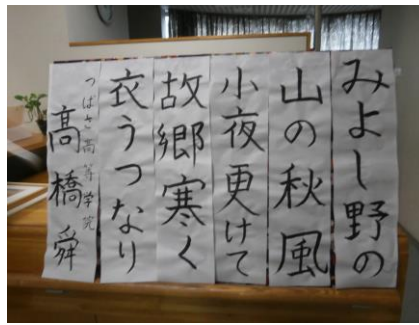 みよし野の
山の秋風
小夜更けて
故郷寒く
衣うつなり
つばさ高等学院
高橋舜